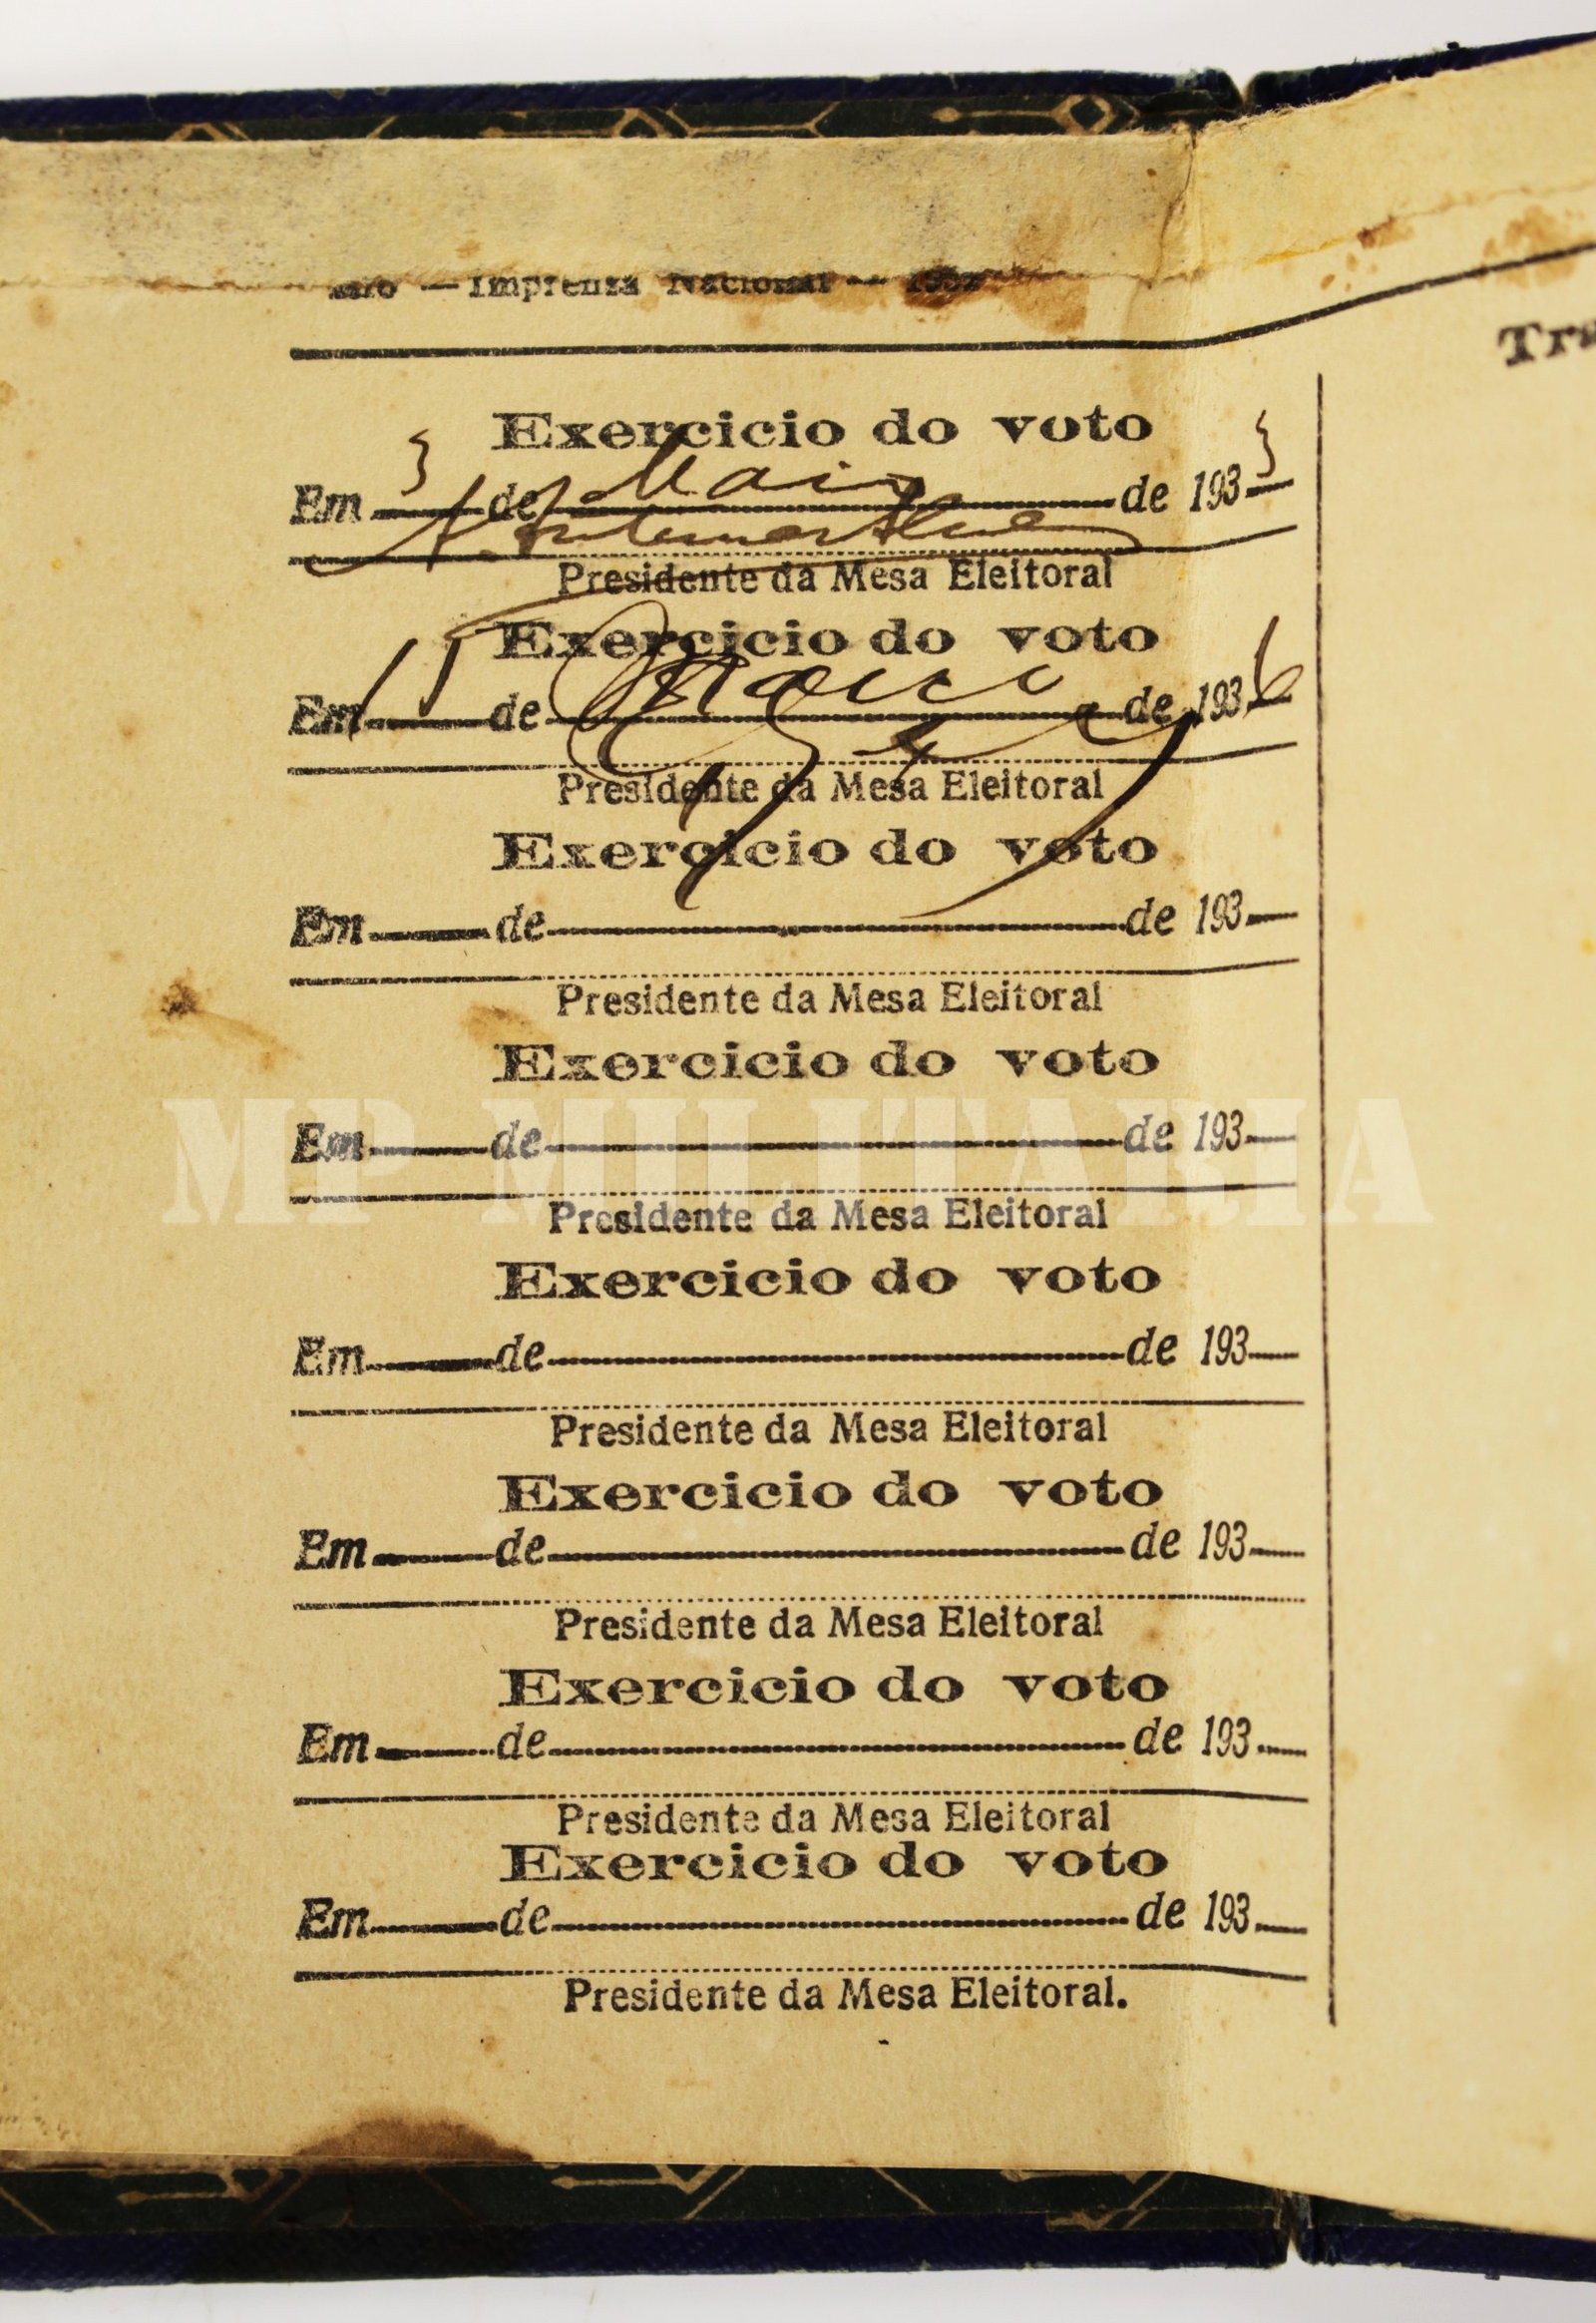 — Imprensa Nacional — 1932
Tra
Exercicio do voto
Em 3 de Maio de 1933
Presidente da Mesa Eleitoral
Exercicio do voto
Em 15 de Março de 1936
Presidente da Mesa Eleitoral
Exercicio do voto
Em de de 193
Presidente da Mesa Eleitoral
Exercicio do voto
MP MILITARIA
Em de de 193
Presidente da Mesa Eleitoral
Exercicio do voto
Em de de 193
Presidente da Mesa Eleitoral
Exercicio do voto
Em de de 193
Presidente da Mesa Eleitoral
Exercicio do voto
Em de de 193
Presidente da Mesa Eleitoral
Exercicio do voto
Em de de 193
Presidente da Mesa Eleitoral.